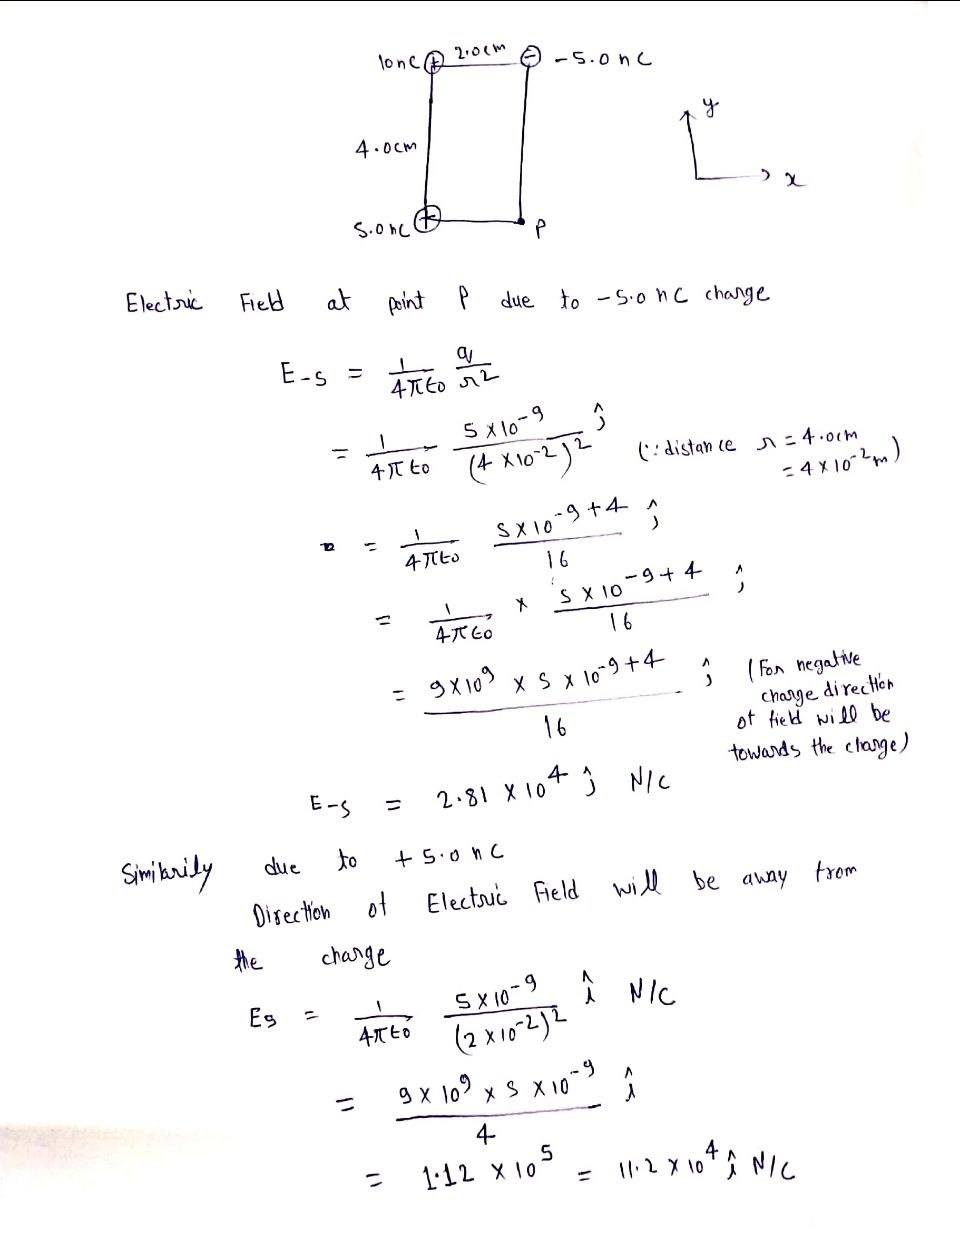 10nC + 2.0cm - -5.0nC
y
4.0cm
x
5.0nC + P
Electric Field at point P due to -5.0nC charge
E-5 = 1/4πε0 q/r2
= 1/4πε0 5×10-9/(4×10-2)2 ĵ (∵ distance r = 4.0cm
= 4×10-2m)
= 1/4πε0 5×10-9+4/16 ĵ
= 1/4πε0 × 5×10-9+4/16 ĵ
= 9×109 × 5×10-9+4/16 ĵ (For negative
charge direction
of field will be
towards the charge)
E-5 = 2.81×104 ĵ N/C
Similarily due to +5.0nC
Direction of Electric Field will be away from
the charge
E5 = 1/4πε0 5×10-9/(2×10-2)2 î N/C
= 9×109 × 5×10-9/4 î
= 1.12×105 = 11.2×104 î N/C